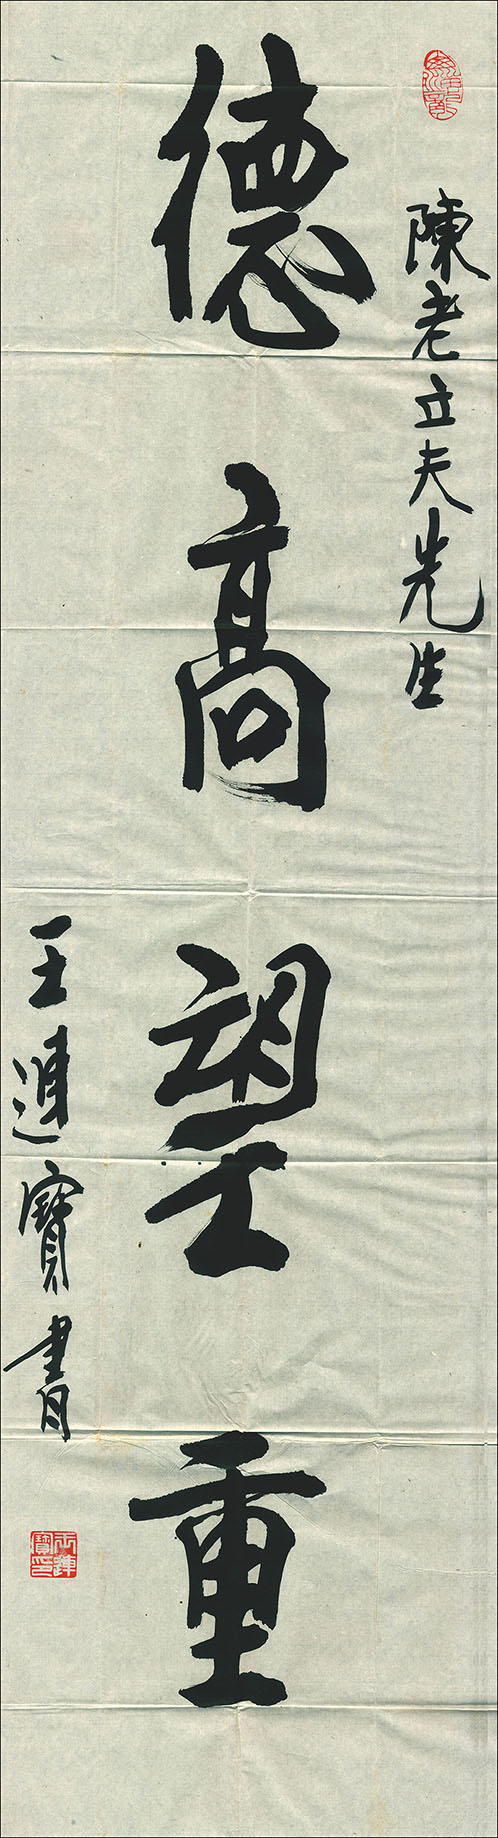 陳老立夫先生
德高望重
王連寶書